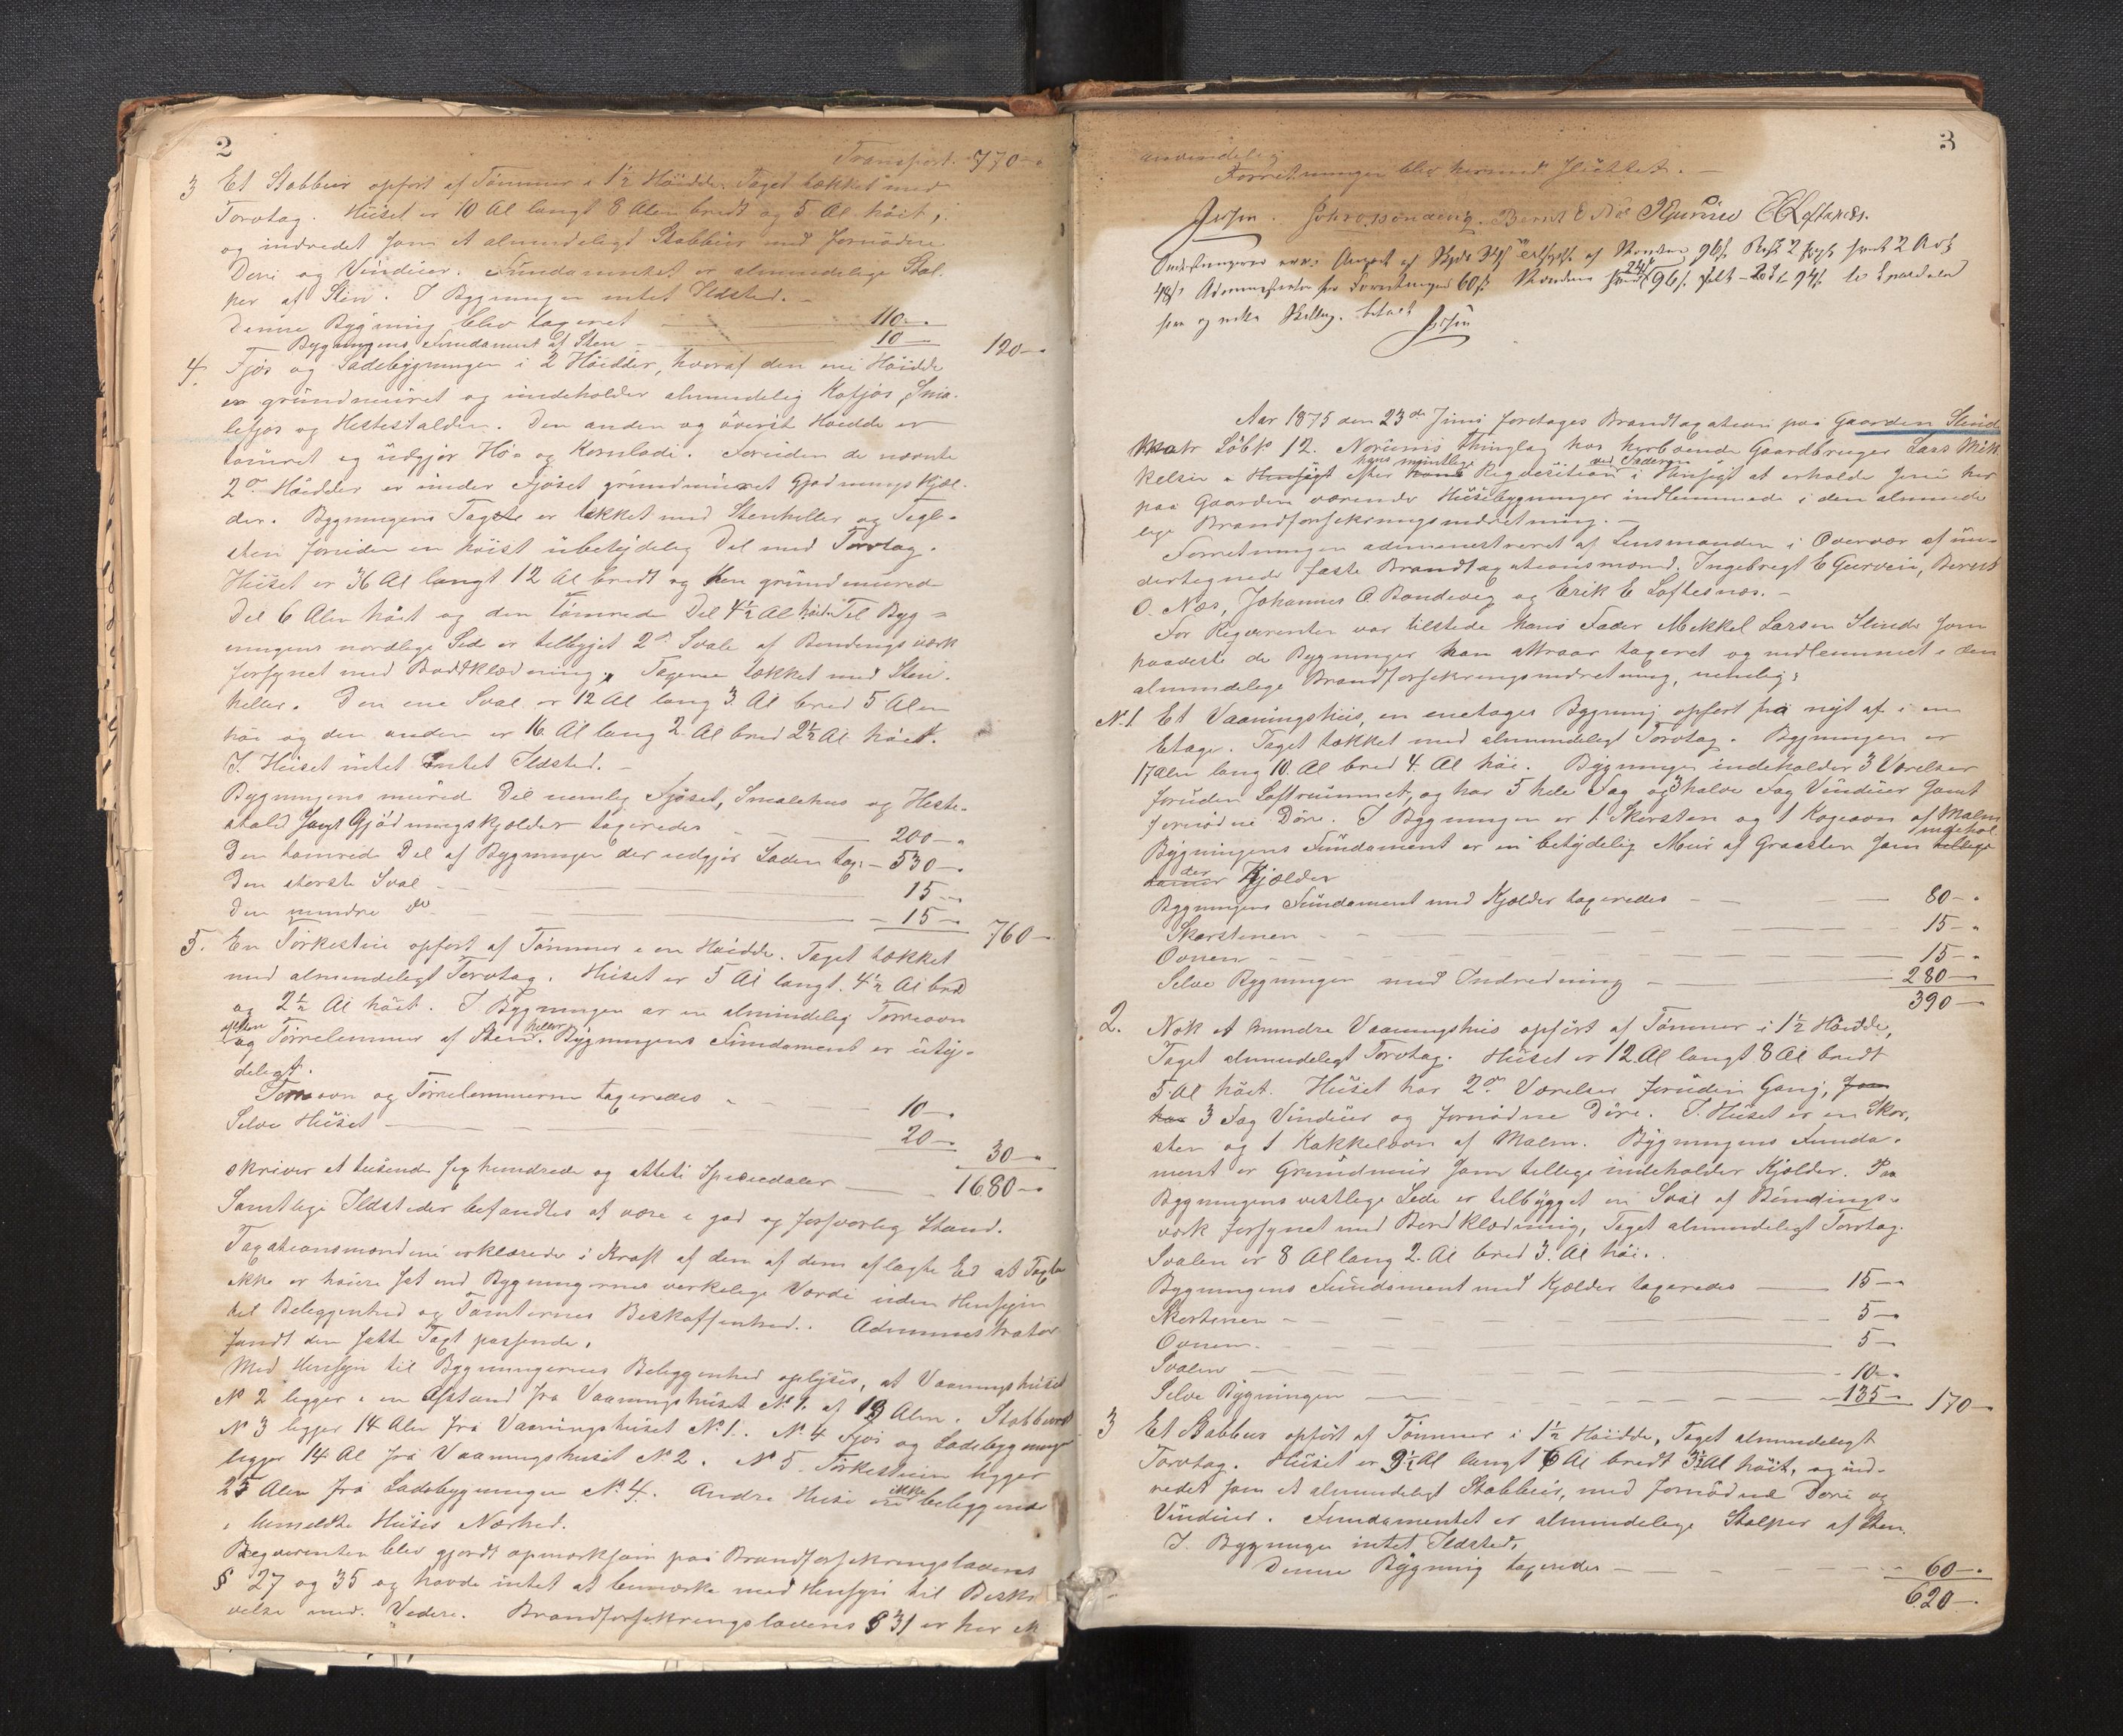 2
Transport. 770-"
3 Et Stabbur opført af Tømmer i 1½ Høidde. Taget tækket med
Torvtag. Huset er 10 Al langt 8 Alen bredt og 5 Al. høit,
og indredet som et almindeligt Stabbur med fornødne
Døre og Vinduer. Fundamentet er almindelige Stol-
per af Sten. I Bygningen intet Ildsted. -
Denne Bygning blev taxeret 110-"
Bygningens Fundament af Sten - 10 — 120-"
4. Fjøs og Ladebygningen i 2 Høidder, hvoraf den ene Høidde
er grundmuret og indeholder almindelig Kofjøs, Sma-
lefjøs og Hestestalden. Den anden og øverste Høidde er
tømret og udgjør Hø- og Kornlade. Foruden de nævnte
2de Høidder er under Fjøset grundmuret Gjødningskjæl-
der. Bygningens Tag er tækket med Stenheller og Tagl-
sten foruden en høist ubetydelig Del med Torvtag.
Huset er 36 Al langt 12 Al bredt og den grundmurede
Del 6 Alen høit og den tømrede Del 4½ Al høi. Til Byg-
ningens nordlige Side er tilbyget 2de Svale af Bindingsværk
forsynet med Bordklædning, Tagene tækket med Sten-
heller. Den ene Sval er 12 Al lang 3 Al bred 5 Alen
høi og den anden er 16 Al lang 2 Al bred 2½ Al høit.
I Huset intet Ildsted. -
Bygningens murede Del nemlig Fjøset, Smalehus og Heste-
stald samt Gjødningskjælder taxeredes — 200-"
Den tømrede Del af Bygningen der udgjør Laden tax: - 530-"
Den største Sval — 15-"
Den mindre do — 15-" 760-
5. En Tørkestue opført af Tømmer i en Høidde. Taget tækket
med almindeligt Torvtag. Huset er 5 Al langt 4½ Al bred
og 2½ Al høit. I Bygningen er en almindelig Tørreovn
af Sten
og Tørrelemmer af Stenheller. Bygningens Fundament er ubety-
deligt.
Tørreovn og Tørrelemmerne taxeredes - 10-"
Selve Huset — 20-" 30-"
skriver et tusende sex hundrede og otteti Speciedaler — 1680-"
Samtlige Ildsteder befandtes at være i god og forsvarlig Stand.
Taxationsmændene erklærede i Kraft af den af dem aflagte Ed at Taxten
ikke er høiere sat end Bygningernes verkelige Værdi uden Hensyn
til Beliggenhed og Tomternes Beskaffenhed. Administrator
fandt den satte Taxt passende.
Med Hensyn til Bygningernes Beliggenhed oplyses, at Vaaningshuset
No 2 ligger i en Afstand fra Vaaningshuset No 1. af 13 Alen. Stabburet
No 3 ligger 14 Alen fra Vaaningshuset No 1. No 4 Fjøs og Ladebygningen
ligger 14 Al fra Vaaningshuset No 2. No 5. Tørkestuen ligger
25 Alen fra Ladebygningen No 4. Andre Huse ere ikke beliggende
i bemeldte Huses Nærhed.
Reqvirenten blev gjordt opmærksom paa Brandforsikringslovens
§ 27 og 35 og havde intet at bemærke med Hensyn til Beskri-
velse med. Videre. Brandforsikringslovens § 31 er her ik
3
anvendelig
Forretningen blev hermed sluttet. -
Aar 1875 den 23de Juni foretoges Brandtaxation paa Gaarden Slinde
Matr Løbe No 12. Norums Thinglag hos herboende Gaardbruger Lars Mik-
kelsen i Hensigt efter hans mundtlige Reqvisition ved Faderen i Hensigt at erholde sine her
paa Gaarden værende Husebygninger indlemmede i den alminde-
lige Brandforsikringsindretning. -
Forretningen administreret af Lensmanden i Overvær af un-
dertegnede faste Brandtaxationsmænd. Ingebrigt E Gurvin, Bernt
O. Næs, Johannes O. Bondevig og Erik E Loftesnæs. -
For Reqvirenten var tilstede hans Fader Mikkel Larsen Slinde som
paaviste de Bygninger han attraar taxeret og indlemmet i den
almindelige Brandforsikringsindretning, nemlig:
No 1. Et Vaaningshus, en enetages Bygning opført fra nyt af i en
Etage. Taget tækket med almindeligt Torvtag. Bygningen er
17 Alen lang 10. Al bred 4. Al høi. Bygningen indeholder 3 Værelser
foruden Loftrummet, og har 5 hele Fag og 3 halve Fag Vinduer samt
fornødne Døre. I Bygningen er 1 Skorsten og 1 Kogeovn af Malm
Bygningens Fundament er en betydelig Mur af Graasten som tillige indehol-
der Kjælder
Bygningens Fundament med Kjælder taxeredes — 80-"
Skorstenen — 15-"
Ovnen — 15-"
Selve Bygningen med Indredning — 280-
390-
2. Nok et mindre Vaaningshus opført af Tømmer i 1½ Høidde,
Taget almindeligt Torvtag. Huset er 12 Al langt 8 Al bredt
5 Al høit. Huset har 2de Værelser foruden Gang, som
har 3 Fag Vinduer og fornødne Døre. I Huset er en Skor-
sten og 1 Kakkelovn af Malm. Bygningens Funda-
ment er Grundmur som tillige indeholder Kjælder. Paa
Bygningens vestlige Side er tilbygget en Sval af Bindings-
værk forsynet med Bordklædning, Taget almindeligt Torvtag.
Svalen er 8 Al lang 2. Al bred 3. Al høi.
Bygningens Fundament med Kjælder taxeredes — 15-"
Skorstenen — 5-"
Ovnen — 5-
Svalen — 10-"
Selve Bygningen — 135- 170-"
3 Et Stabbur opført af Tømmer i 1½ Høidde, Taget almindeligt
Torvtag. Huset er 9½ Al langt 6 Al bredt 3½ Al høit, og ind-
redet som et almindeligt Stabbur, med fornødne Døre og
Vinduer. Fundamentet er almindelige Stolper af Sten.
I Bygningen intet Ildsted.
Denne Bygning taxeredes — 60-"
620-